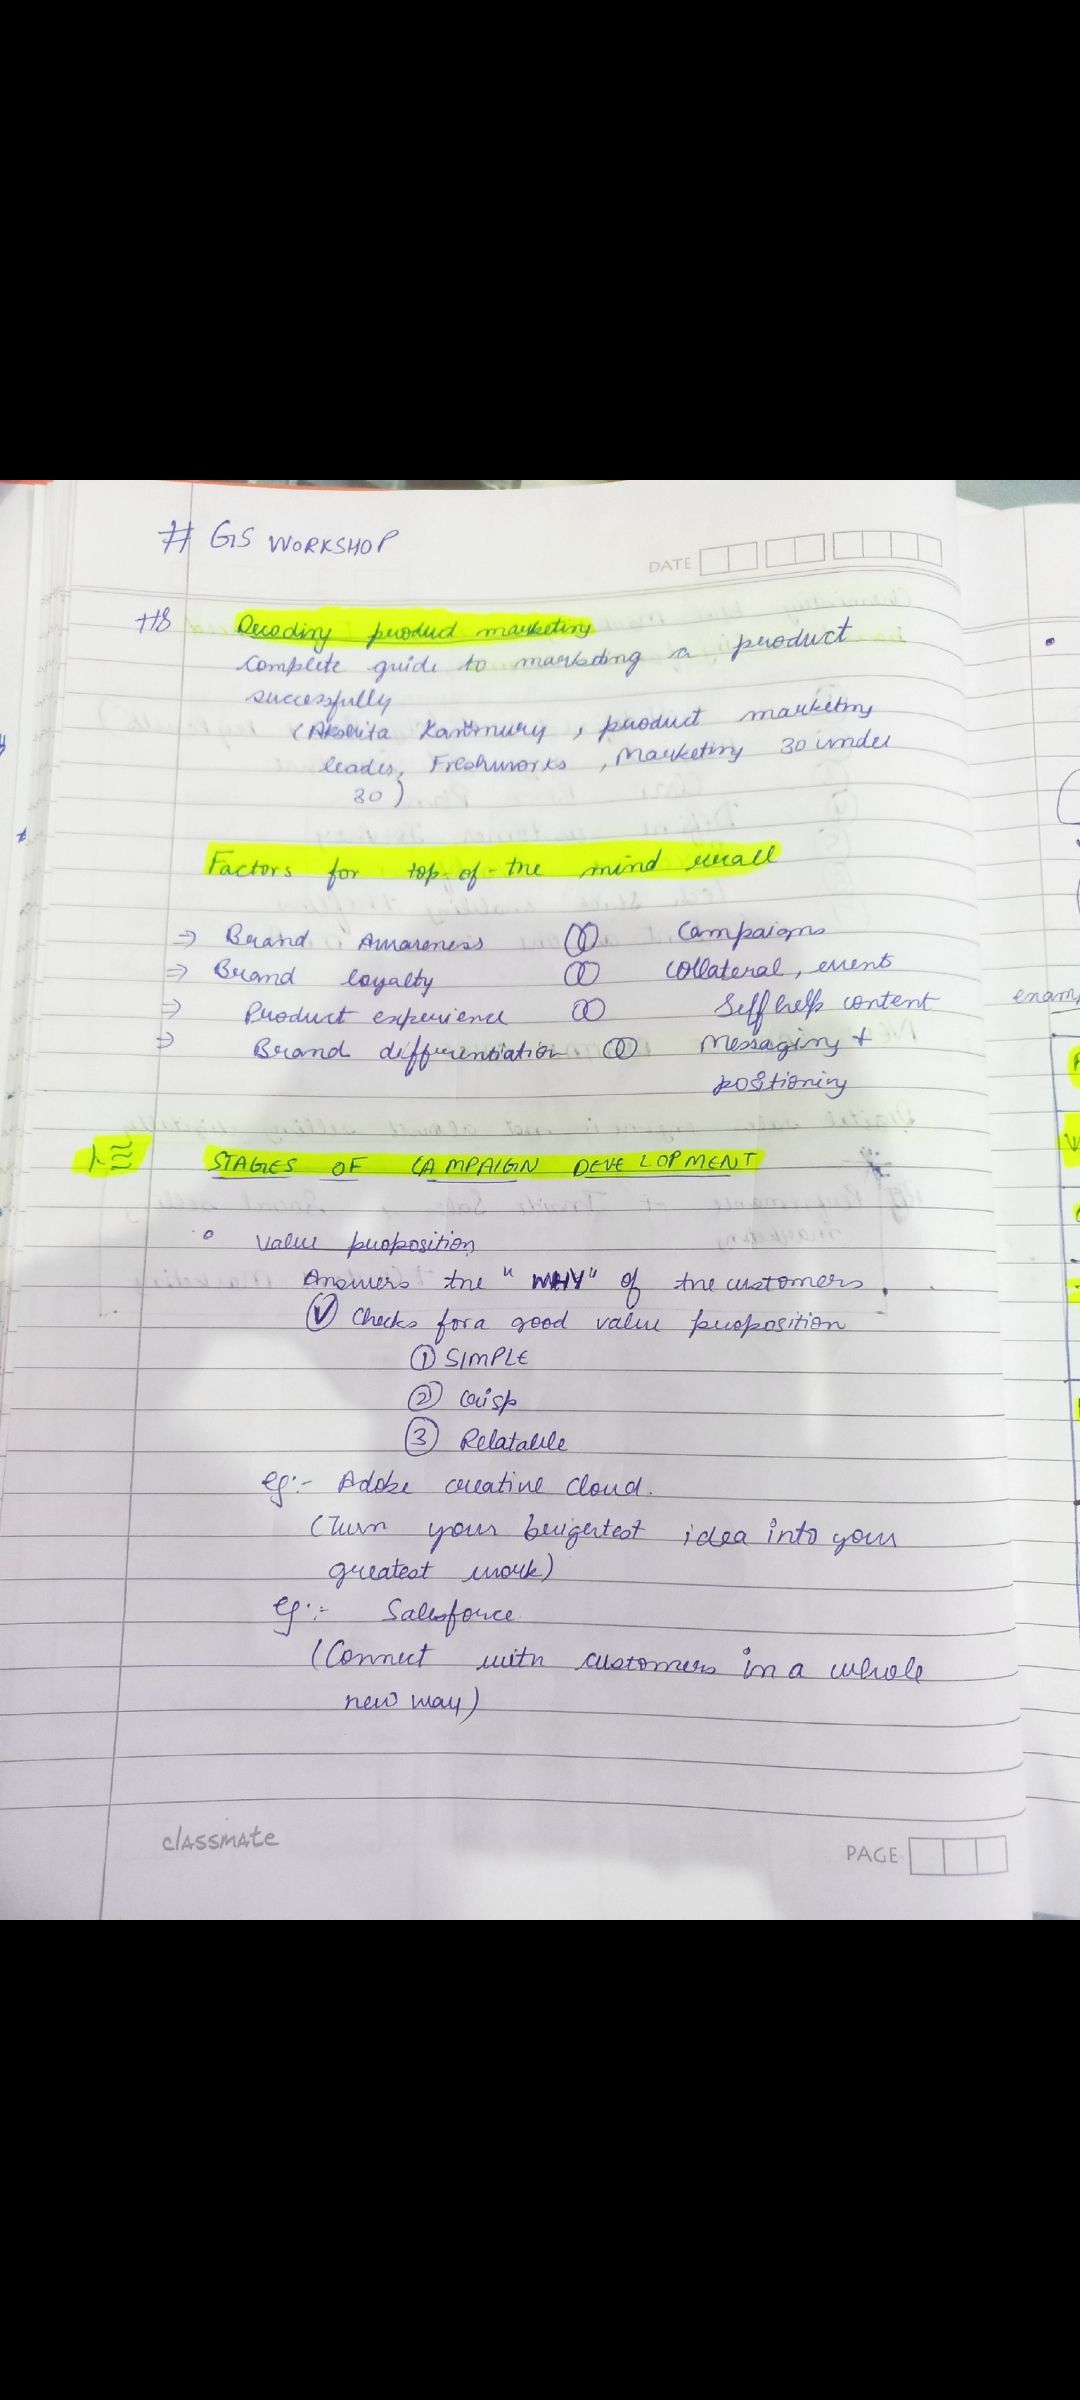 # GIS WORKSHOP
DATE
Decoding product marketing
complete guide to marketing a product
successfully
(Akshita Kanúmury, product marketing
leader, Freshworks, Marketing 30 under
30)
Factors for top-of-the mind recall
⇒ Brand Awareness Campaigns
⇒ Brand loyalty collateral, event
⇒ Product experience Self help content
⇒ Brand differentiation Messaging +
positioning
STAGES OF CAMPAIGN DEVELOPMENT
• value proposition
Answers the "WHY" of the customers.
✓ Checks for a good value proposition
① SIMPLE
② Crisp
③ Relatable
eg:- Adobe creative cloud.
(Turn your brigertest idea into your
greatest work)
eg:- Salesforce
(Connect with customers in a whole
new way)
classmate
PAGE
exam